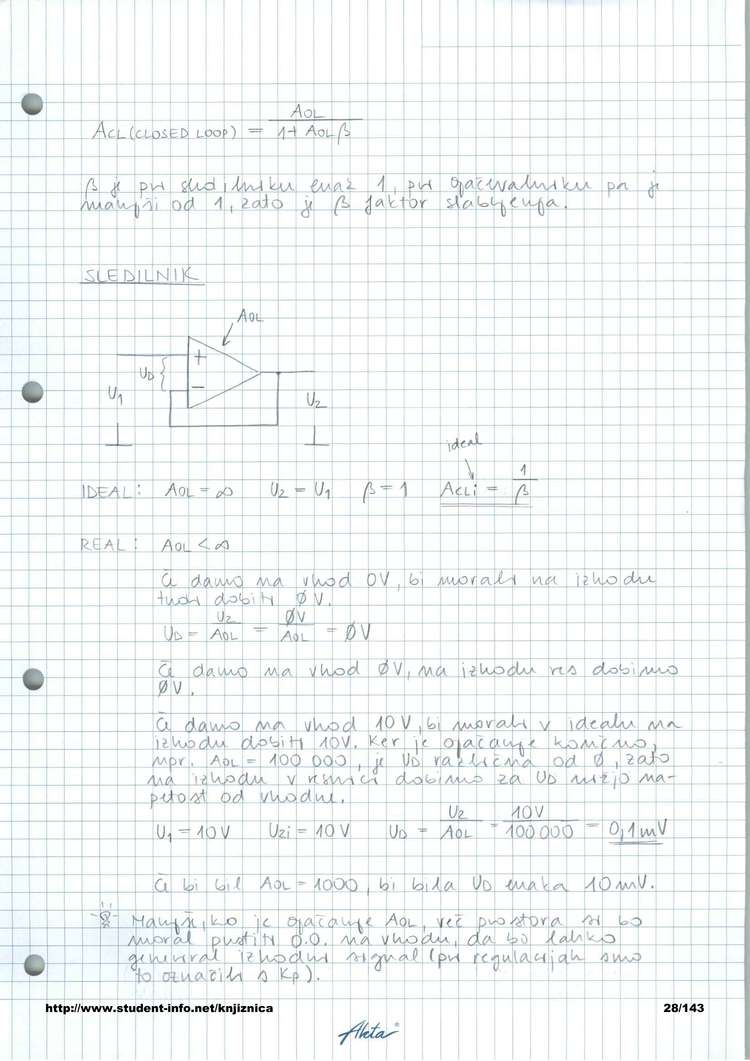 ACL (CLOSED LOOP) = AOL / 1+ AOL β
β je pri sledilniku enaz 1, pri ojačevalniku pa je
manjši od 1, zato je β faktor slabljenja.
SLEDILNIK
AOL
UD
+
−
U1
U2
ideal
IDEAL: AOL = ∞ U2 = U1 β = 1 ACLi = 1/β
REAL: AOL < ∞
Če damo na vhod 0V, bi morali na izhodu
tudi dobiti ØV.
UD = U2/AOL = ØV/AOL = ØV
Če damo na vhod ØV, na izhodu res dobimo
ØV.
Če damo na vhod 10V, bi morali v idealu na
izhodu dobiti 10V. Ker je ojačanje končno,
npr. AOL = 100 000, je UD različna od Ø, zato
na izhodu v resnici dobimo za UD nižjo na-
petost od vhodne.
U1 = 10V U2i = 10V UD = U2/AOL = 10V/100 000 = 0,1mV
Če bi bil AOL = 1000, bi bila UD enaka 10mV.
Manjše, ko je ojačanje AOL, več prostora si bo
moral pustiti O.O. na vhodu, da bo lahko
generiral izhodni signal (pri regulacijah smo
to označili s Kp).
http://www.student-info.net/knjiznica
28/143
Aketa